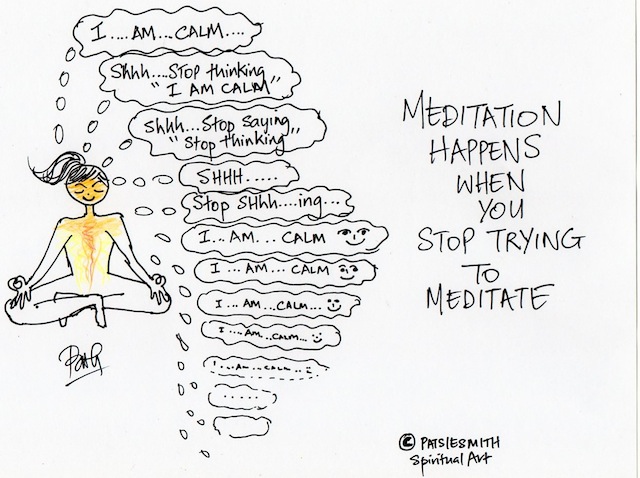 I....AM...CALM....
Shhh....STOP thinking
"I AM CALM"
Shhh...Stop Saying
"Stop thinking"
SHHH......
Stop SHhh....ing...
I...AM... CALM
I ...AM... CALM
I ...AM...CALM...
I ....AM...CALM...
I...AM...CALM...
......
MEDITATION
HAPPENS
WHEN
YOU
STOP TRYING
TO
MEDITATE
© PATSIESMITH
Spiritual Art